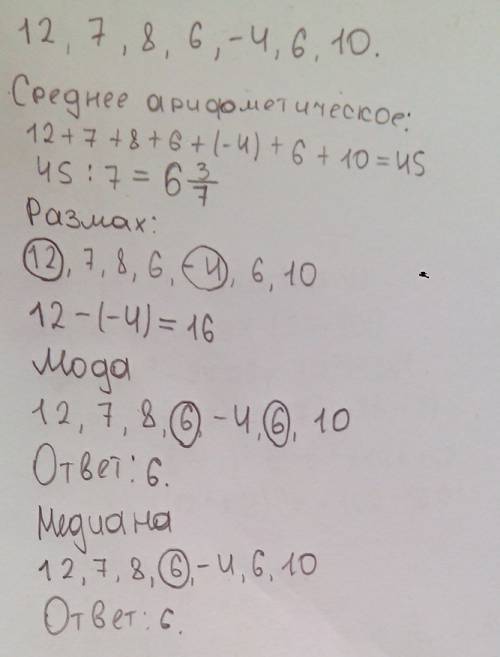 12, 7, 8, 6, -4, 6, 10.
Среднее арифометическое:
12+7+8+6+(-4)+6+10=45
45:7=6 3/7
Размах:
12, 7, 8, 6, -4, 6, 10
12-(-4)=16
Мода
12, 7, 8, 6, -4, 6, 10
Ответ: 6.
Медиана
12, 7, 8, 6, -4, 6, 10
Ответ: 6.